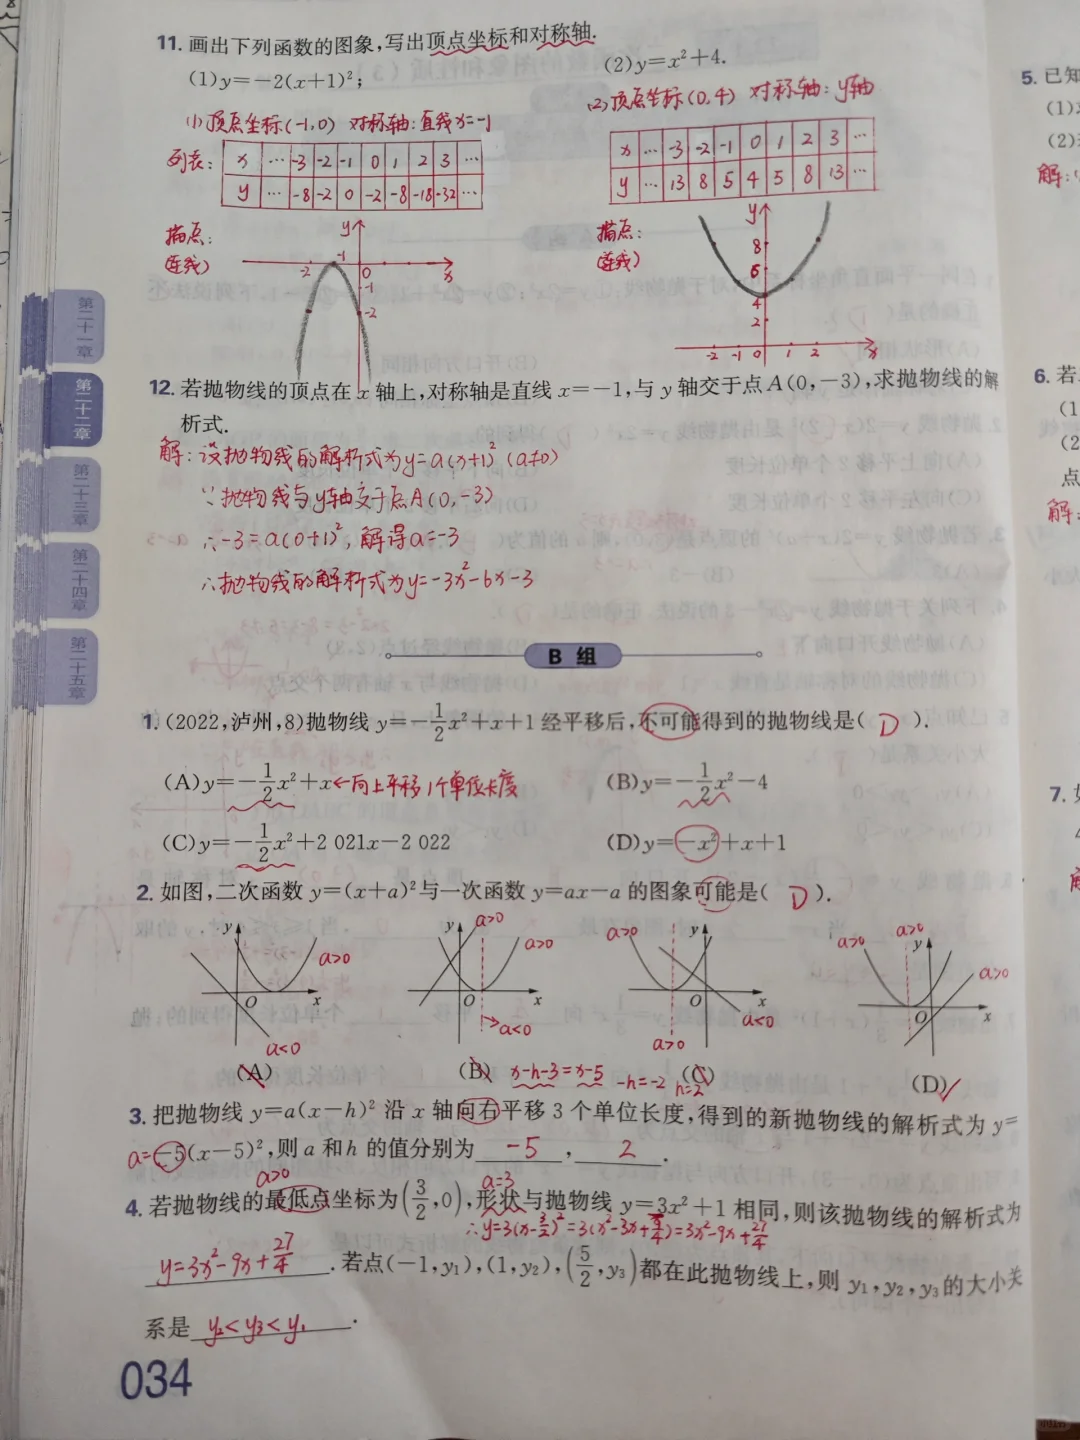 11. 画出下列函数的图象,写出顶点坐标和对称轴.
(1)y=-2(x+1)²;
(2)y=x²+4.
(1)顶点坐标(-1,0) 对称轴:直线x=-1
(2)顶点坐标(0,4) 对称轴:y轴
列表: x … -3 -2 -1 0 1 2 3 …
y … -8 -2 0 -2 -8 -18 -32 …
x … -3 -2 -1 0 1 2 3 …
y … 13 8 5 4 5 8 13 …
描点:
(连线)
y -2 -1 0 x
-1
-2
描点:
(连线)
y
8
6
4
2
-2 -1 0 1 2 x
12. 若抛物线的顶点在 x 轴上,对称轴是直线 x=-1,与 y 轴交于点 A(0,-3),求抛物线的解
析式.
解:设抛物线的解析式为y=a(x+1)²(a≠0)
∵抛物线与y轴交于点A(0,-3)
∴-3=a(0+1)²,解得a=-3
∴抛物线的解析式为y=-3x²-6x-3
B 组
1. (2022,泸州,8)抛物线 y=-1/2x²+x+1 经平移后,不可能得到的抛物线是( D ).
(A)y=-1/2x²+x←向上平移1个单位长度
(B)y=-1/2x²-4
(C)y=-1/2x²+2 021x-2 022
(D)y=-x²+x+1
2. 如图,二次函数 y=(x+a)²与一次函数 y=ax-a 的图象可能是( D ).
y a>0 O x a<0
y a>0 a>0 O x a<0
a>0 y O x a<0 a>0
a>0 a>0 y a>0 O x
(A)
(B)
(C)
(D)✓
x-h-3=x-5 -h=-2 h=2
3. 把抛物线 y=a(x-h)² 沿 x 轴向右平移 3 个单位长度,得到的新抛物线的解析式为 y=
a= -5(x-5)²,则 a 和 h 的值分别为 -5 , 2 .
a>0 a=3
4. 若抛物线的最低点坐标为(3/2,0),形状与抛物线 y=3x²+1 相同,则该抛物线的解析式为
∴y=3(x-3/2)²=3(x²-3x+9/4)=3x²-9x+27/4
y=3x²-9x+27/4 .若点(-1,y₁),(1,y₂),(5/2,y₃)都在此抛物线上,则 y₁,y₂,y₃的大小关
系是 y₂<y₃<y₁ .
034
第二十一章
第二十二章
第二十三章
第二十四章
第二十五章
5. 已知
(1)
(2)
解:
6. 若
(1
(2
点
解:
7.